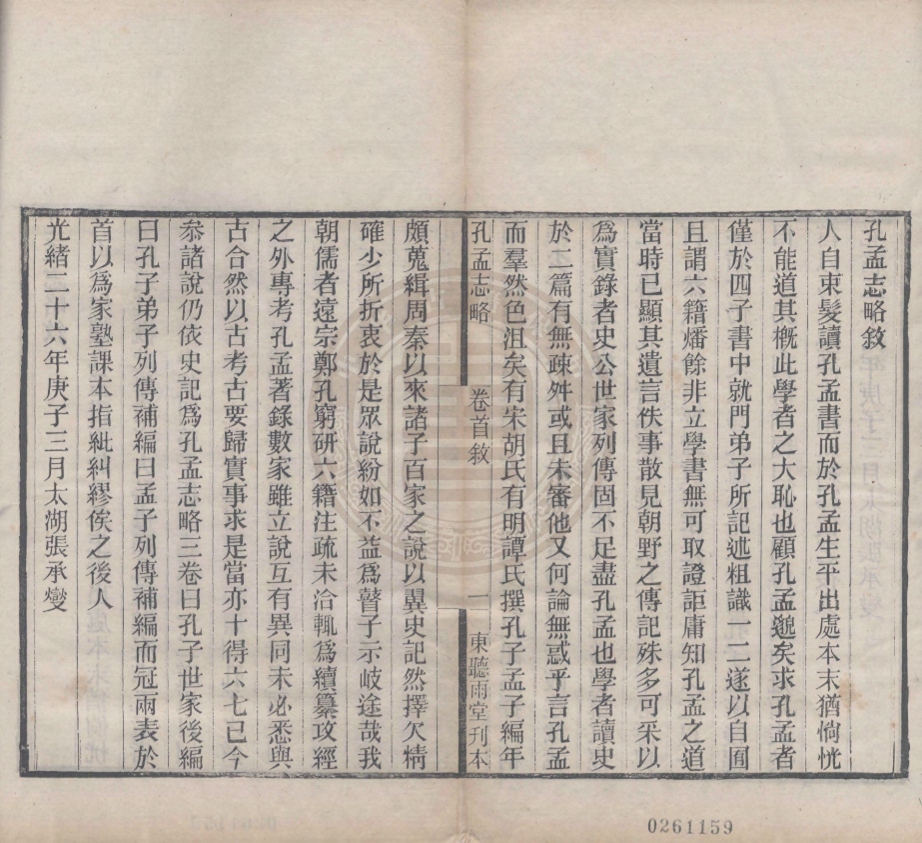 孔孟志略敘
人自束髮讀孔孟書而於孔孟生平出處本末猶惝恍
不能道其槪此學者之大恥也顧孔孟邈矣求孔孟者
僅於四子書中就門弟子所記述粗識一二遂以自囿
且謂六籍燔餘非立學書無可取證詎庸知孔孟之道
當時已顯其遺言佚事散見朝野之傳記殊多可采以
爲實錄者史公世家列傳固不足盡孔孟也學者讀史
於二篇有無疎舛或且未審他又何論無惑乎言孔孟
而羣然色沮矣有宋胡氏有明譚氏撰孔子孟子編年
孔孟志略
卷首敘
一
東聽雨堂刊本
頗蒐緝周秦以來諸子百家之說以翼史記然擇欠精
確少所折衷於是眾說紛如不益爲瞽子示岐途哉我
朝儒者遠宗鄭孔窮研六籍注疏未洽輒爲續纂攻經
之外專考孔孟著錄數家雖立說互有異同未必悉與
古合然以古考古要歸實事求是當亦十得六七已今
叅諸說仍依史記爲孔孟志略三卷曰孔子世家後編
曰孔子弟子列傳補編曰孟子列傳補編而冠兩表於
首以爲家塾課本指紕糾繆俟之後人
光緒二十六年庚子三月太湖張承燮
0261159